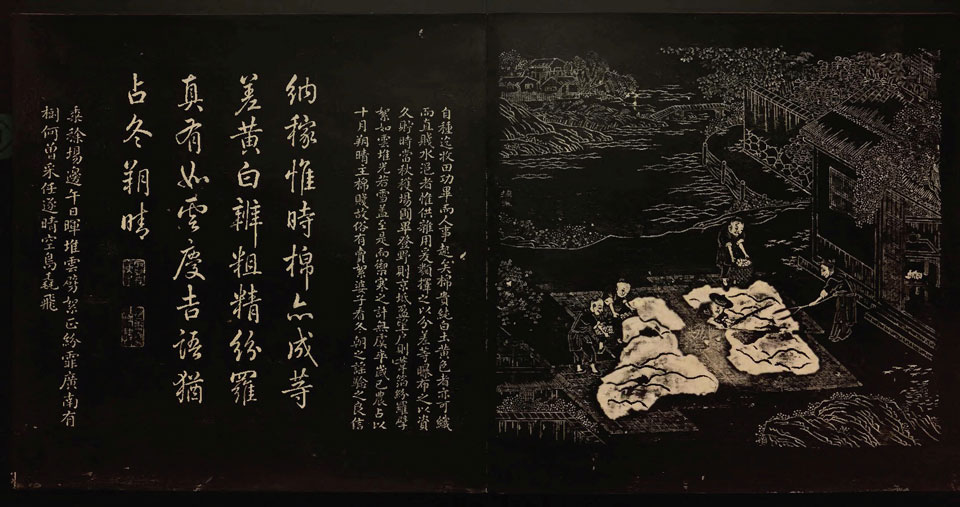 自種迄收田功畢而人事起矣棉貴純白土黄色者亦可織
而直賤水浥者惟供雜用爰類擇之以分差等曝布之以資
久貯時當秋穫場圃畢登野則京坻盈望户則箔紛羅擘
絮如雲堆光若雪蓋至是而禦寒之計無虞卒歲已農占以
十月朔晴主棉暖故俗有賣絮婆子看冬朝之諺驗之良信
納稼惟時棉亦成等
差黄白辨粗精紛羅
真有如雲慶吉語猶
占冬朔晴
滌場邊午日暉堆雲劈絮正紛霏廣南有
樹何曾采任逐晴空鳥毳飛